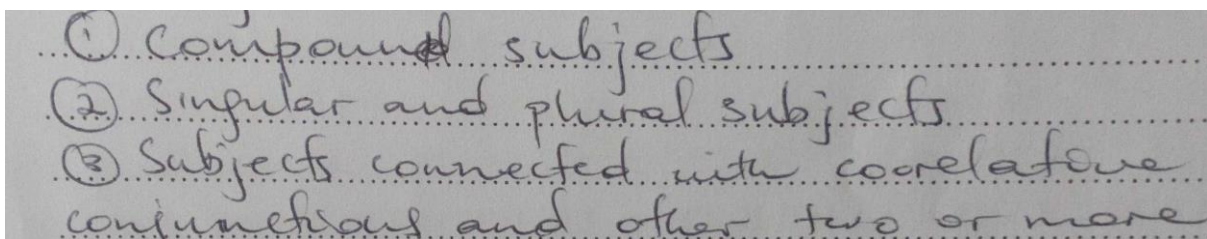 ① Compound subjects
② Singular and plural subjects
③ Subjects connected with coorelative
conjunctions and other two or more